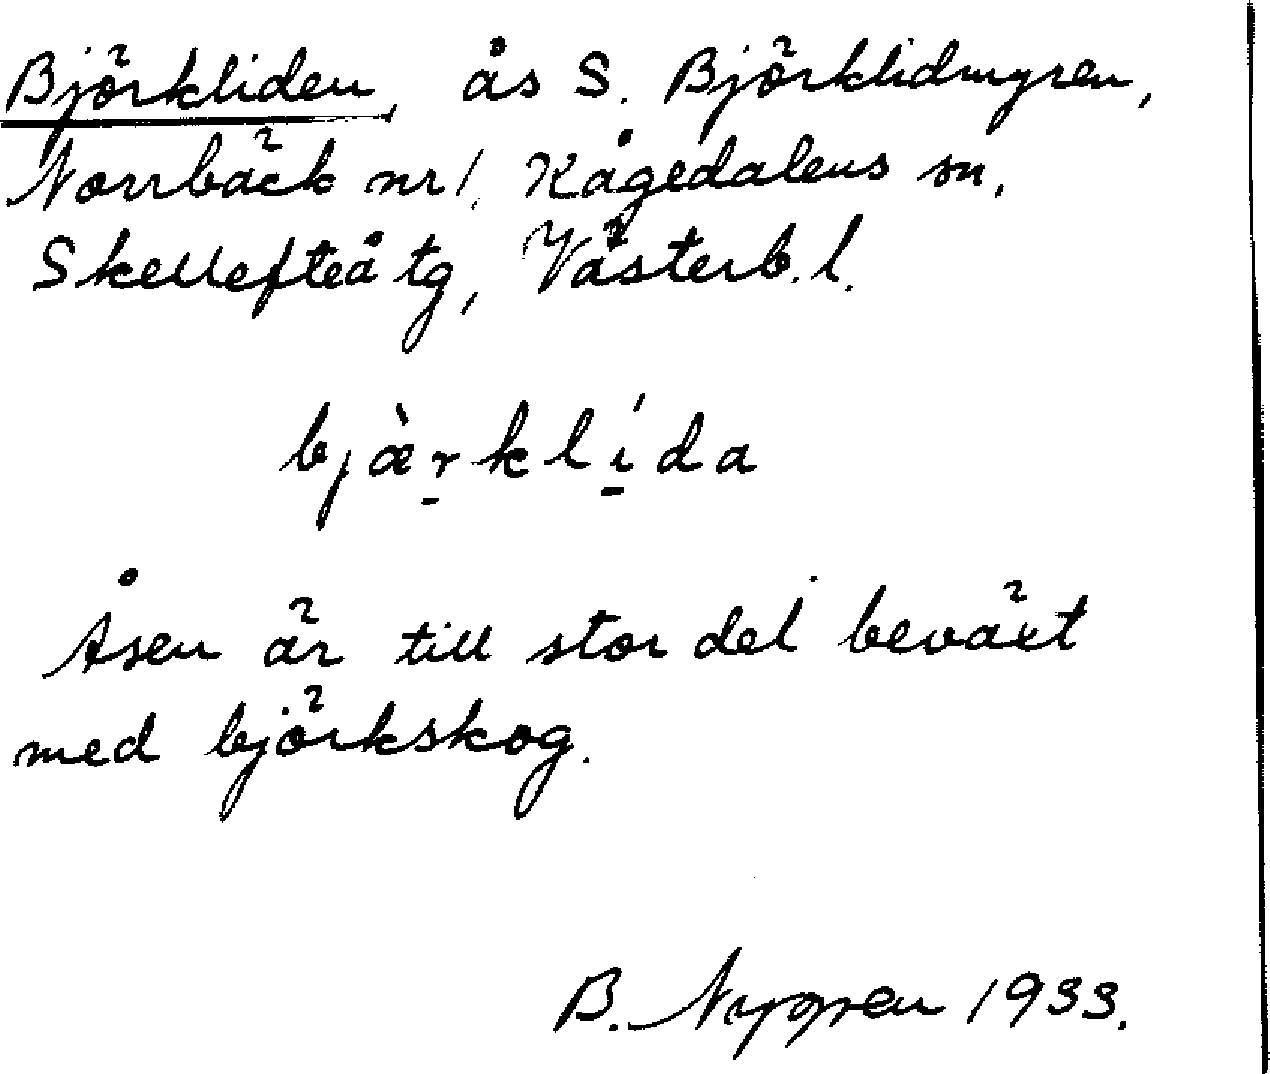 Björkliden, ås S. Björklidmyren,
Norrbäck nr 1, Kågedalens sn,
Skellefteå tg, Västerb. l.
bjæ̀r̠klí̠da
Åsen är till stor del beväxt
med björkskog.
B. Nygren 1933.